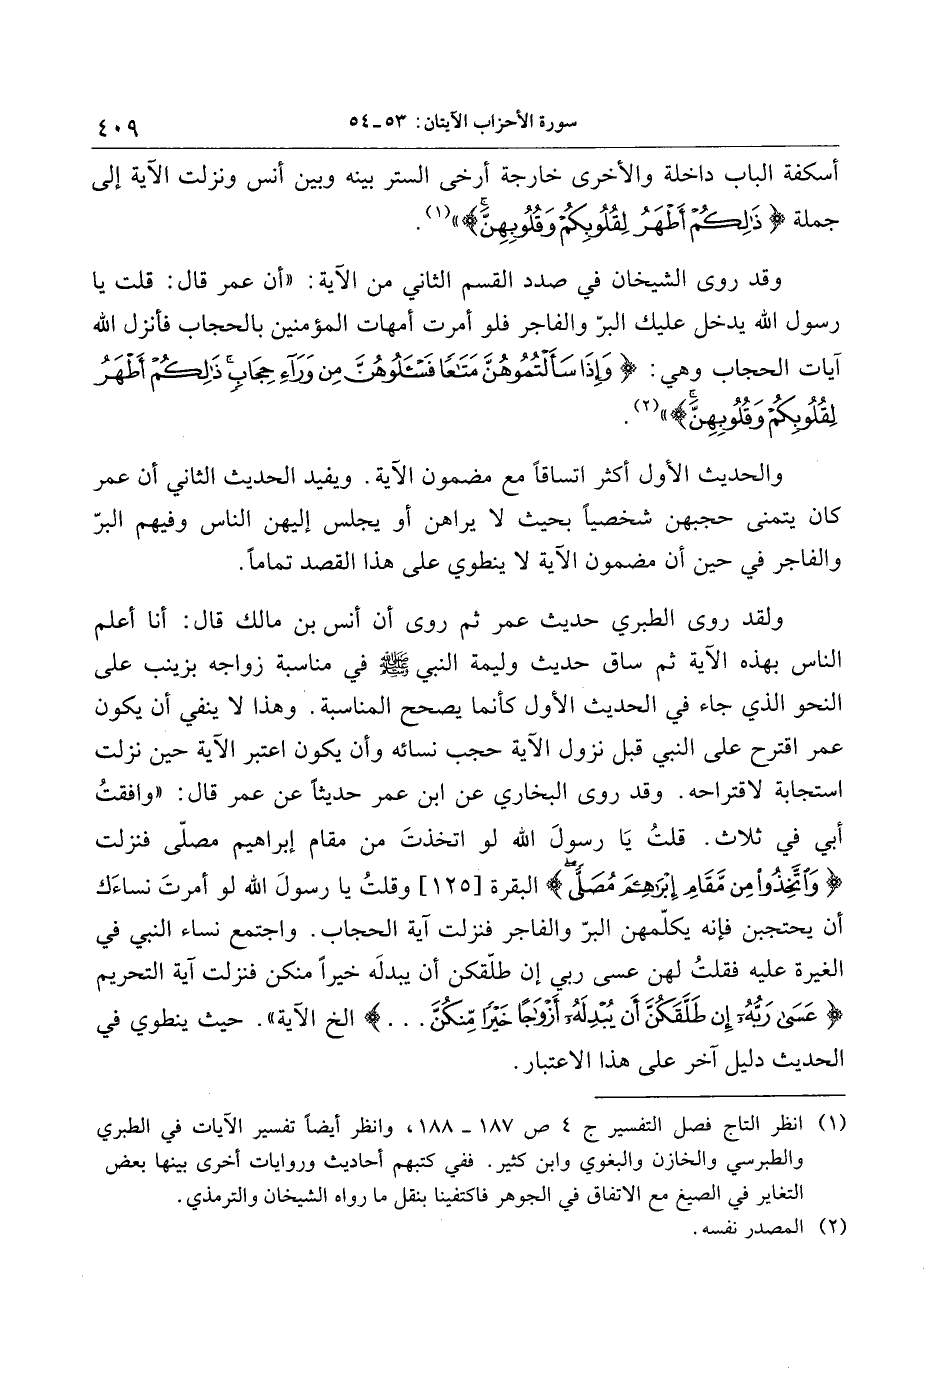 سورة الأحزاب الآيتان: ٥٣ـ٥٤
٤٠٩
أسكفة الباب داخلة والأخرى خارجة أرخى الستر بينه وبين أنس ونزلت الآية إلى
جملة ﴿ ذَٰلِكُمْ أَطْهَرُ لِقُلُوبِكُمْ وَقُلُوبِهِنَّ ۚ﴾»(١).
وقد روى الشيخان في صدد القسم الثاني من الآية: «أن عمر قال: قلت يا
رسول الله يدخل عليك البرّ والفاجر فلو أمرت أمهات المؤمنين بالحجاب فأنزل الله
آيات الحجاب وهي: ﴿ وَإِذَا سَأَلْتُمُوهُنَّ مَتَٰعًا فَسْـَٔلُوهُنَّ مِن وَرَآءِ حِجَابٍ ۚ ذَٰلِكُمْ أَطْهَرُ
لِقُلُوبِكُمْ وَقُلُوبِهِنَّ ۚ﴾»(٢).
والحديث الأول أكثر اتساقاً مع مضمون الآية. ويفيد الحديث الثاني أن عمر
كان يتمنى حجبهن شخصياً بحيث لا يراهن أو يجلس إليهن الناس وفيهم البرّ
والفاجر في حين أن مضمون الآية لا ينطوي على هذا القصد تماماً.
ولقد روى الطبري حديث عمر ثم روى أن أنس بن مالك قال: أنا أعلم
الناس بهذه الآية ثم ساق حديث وليمة النبي ﷺ في مناسبة زواجه بزينب على
النحو الذي جاء في الحديث الأول كأنما يصحح المناسبة. وهذا لا ينفي أن يكون
عمر اقترح على النبي قبل نزول الآية حجب نسائه وأن يكون اعتبر الآية حين نزلت
استجابة لاقتراحه. وقد روى البخاري عن ابن عمر حديثاً عن عمر قال: «وافقتُ
أبي في ثلاث. قلتُ يَا رسولَ الله لو اتخذتَ من مقام إبراهيم مصلّى فنزلت
﴿ وَٱتَّخِذُوا۟ مِن مَّقَامِ إِبْرَٰهِـۧمَ مُصَلًّى ۖ﴾ البقرة [١٢٥] وقلتُ يا رسولَ الله لو أمرتَ نساءَك
أن يحتجبن فإنه يكلّمهن البرّ والفاجر فنزلت آية الحجاب. واجتمع نساء النبي في
الغيرة عليه فقلتُ لهن عسى ربي إن طلّقكن أن يبدلَه خيراً منكن فنزلت آية التحريم
﴿ عَسَىٰ رَبُّهُۥٓ إِن طَلَّقَكُنَّ أَن يُبْدِلَهُۥٓ أَزْوَٰجًا خَيْرًا مِّنكُنَّ . . .﴾ الخ الآية». حيث ينطوي في
الحديث دليل آخر على هذا الاعتبار.
(١) انظر التاج فصل التفسير ج ٤ ص ١٨٧ ـ ١٨٨، وانظر أيضاً تفسير الآيات في الطبري
والطبرسي والخازن والبغوي وابن كثير. ففي كتبهم أحاديث وروايات أخرى بينها بعض
التغاير في الصيغ مع الاتفاق في الجوهر فاكتفينا بنقل ما رواه الشيخان والترمذي.
(٢) المصدر نفسه.